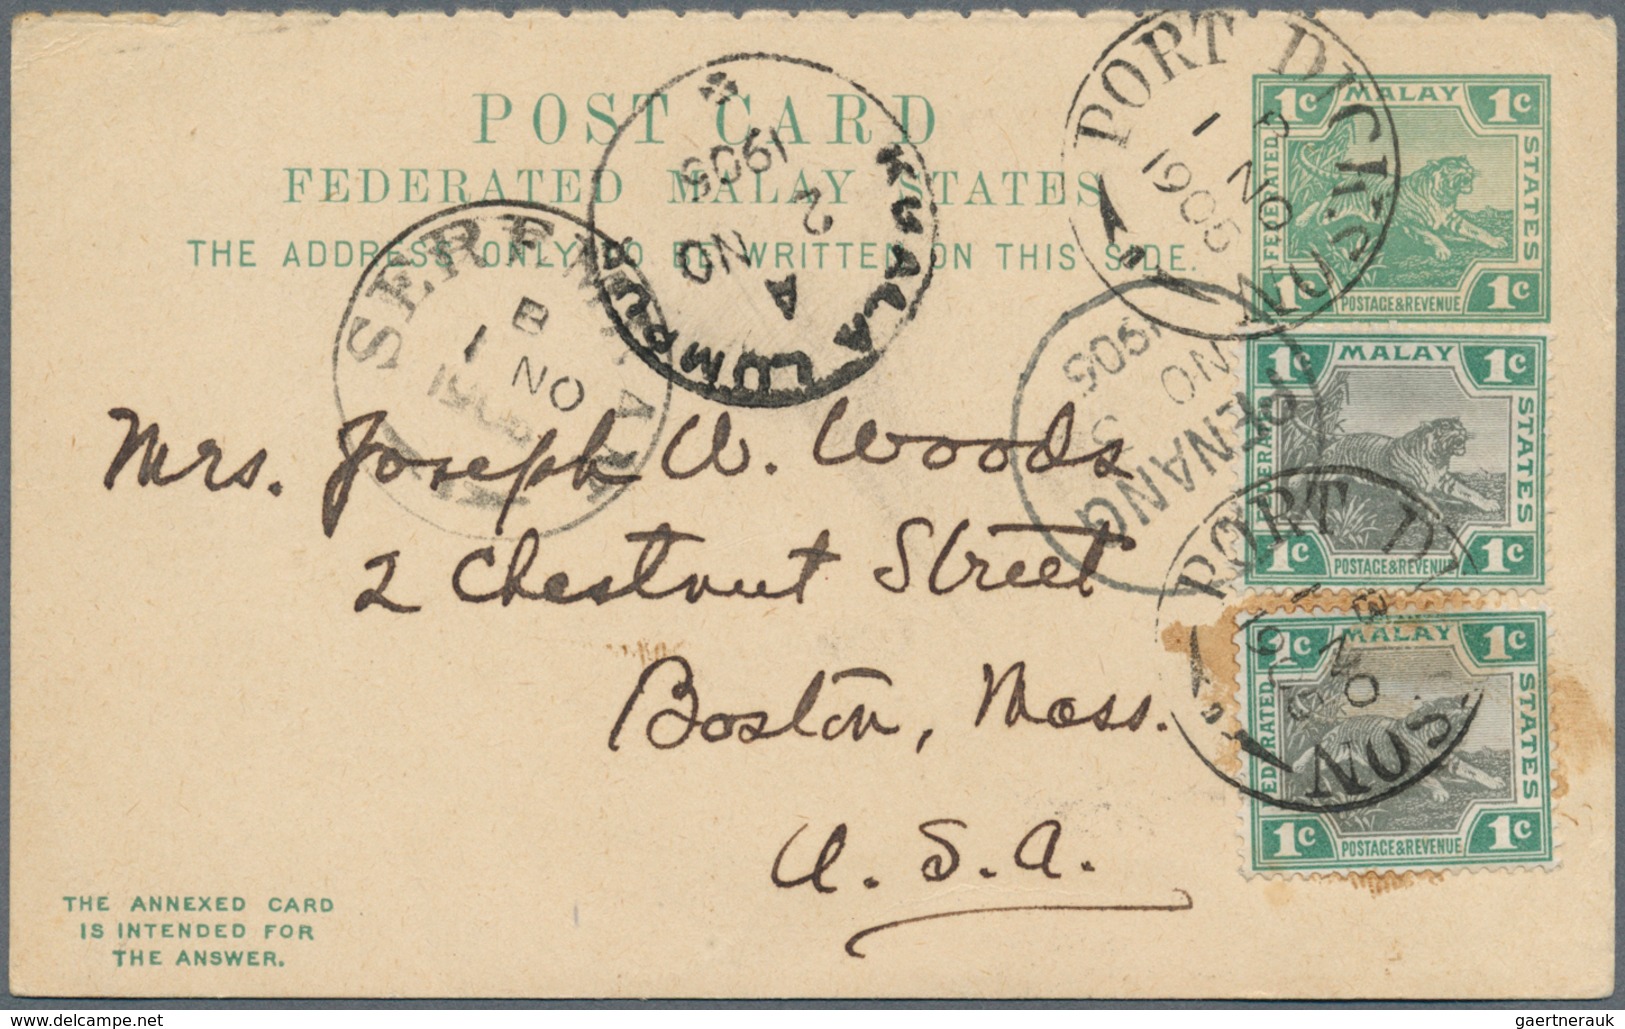 POST CARD
FEDERATED MALAY STATES
THE ADDRESS ONLY TO BE WRITTEN ON THIS SIDE.
PORT DICKSON
1 NO
1905
SEREMBAN
B
1 NO
KUALA LUMPUR
A
2 NO
1905
PENANG
NO
1905
1c MALAY 1c
FEDERATED STATES
1c POSTAGE & REVENUE 1c
1c MALAY 1c
FEDERATED STATES
1c POSTAGE & REVENUE 1c
1c MALAY 1c
FEDERATED STATES
1c POSTAGE & REVENUE 1c
PORT
NO
Mrs. Joseph W. Woods
2 Chestnut Street
Boston, Mass.
U.S.A.
THE ANNEXED CARD
IS INTENDED FOR
THE ANSWER.
delcampe.net
gaertnerauk